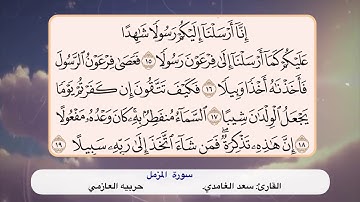 إِنَّآ أَرْسَلْنَآ إِلَيْكُمْ رَسُولًا شَٰهِدًا
عَلَيْكُمْ كَمَآ أَرْسَلْنَآ إِلَىٰ فِرْعَوْنَ رَسُولًا ١٥ فَعَصَىٰ فِرْعَوْنُ ٱلرَّسُولَ
فَأَخَذْنَٰهُ أَخْذًا وَبِيلًا ١٦ فَكَيْفَ تَتَّقُونَ إِن كَفَرْتُمْ يَوْمًا
يَجْعَلُ ٱلْوِلْدَٰنَ شِيبًا ١٧ ٱلسَّمَآءُ مُنفَطِرٌۢ بِهِۦۚ كَانَ وَعْدُهُۥ مَفْعُولًا
١٨ إِنَّ هَٰذِهِۦ تَذْكِرَةٌۖ فَمَن شَآءَ ٱتَّخَذَ إِلَىٰ رَبِّهِۦ سَبِيلًا ١٩
سورة المزمل
القارئ: سعد الغامدي. حربيه العازمي